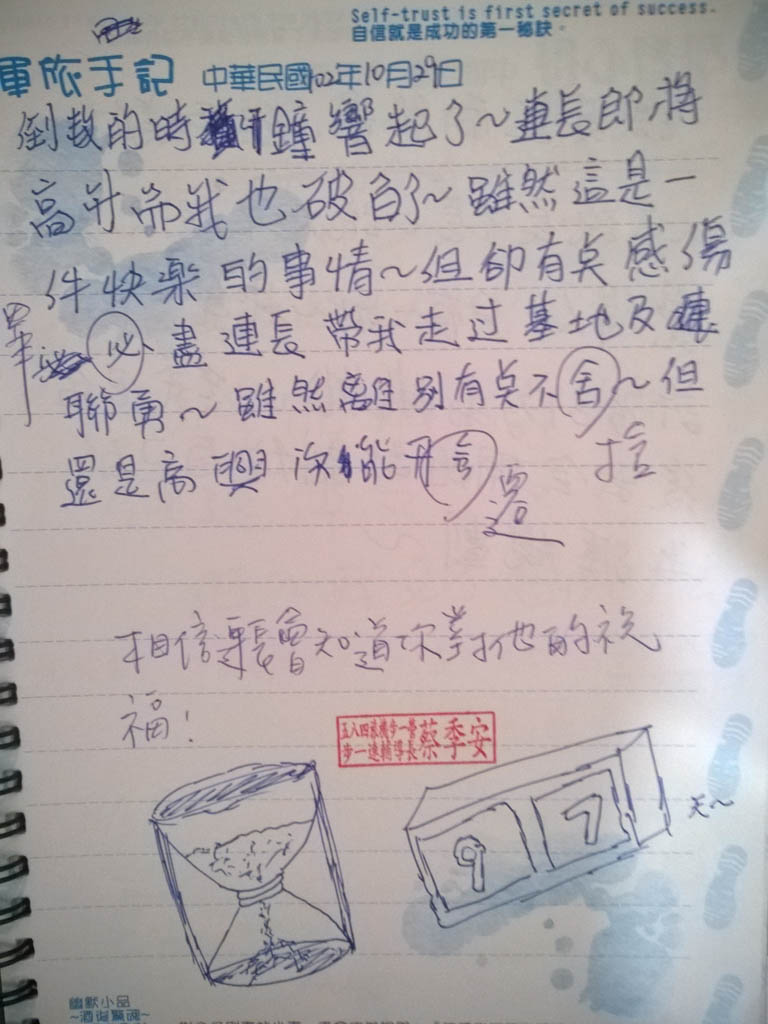 Self-trust is first secret of success.
自信就是成功的第一秘訣。
軍旅手記 中華民國102年10月29日
倒数的時鐘響起了~連長即將
高升而我也破百了~雖然這是一
件快樂的事情~但卻有点感傷
畢 必 盡連長帶我走过基地及
聯勇~雖然離別有点不舍~但
捨
還是高興 能
還
相信連長會知道你對他的祝
福!
五八四旅機步一營
步一連輔導長 蔡季安
97 天~
幽默小品
~酒後驚魂~